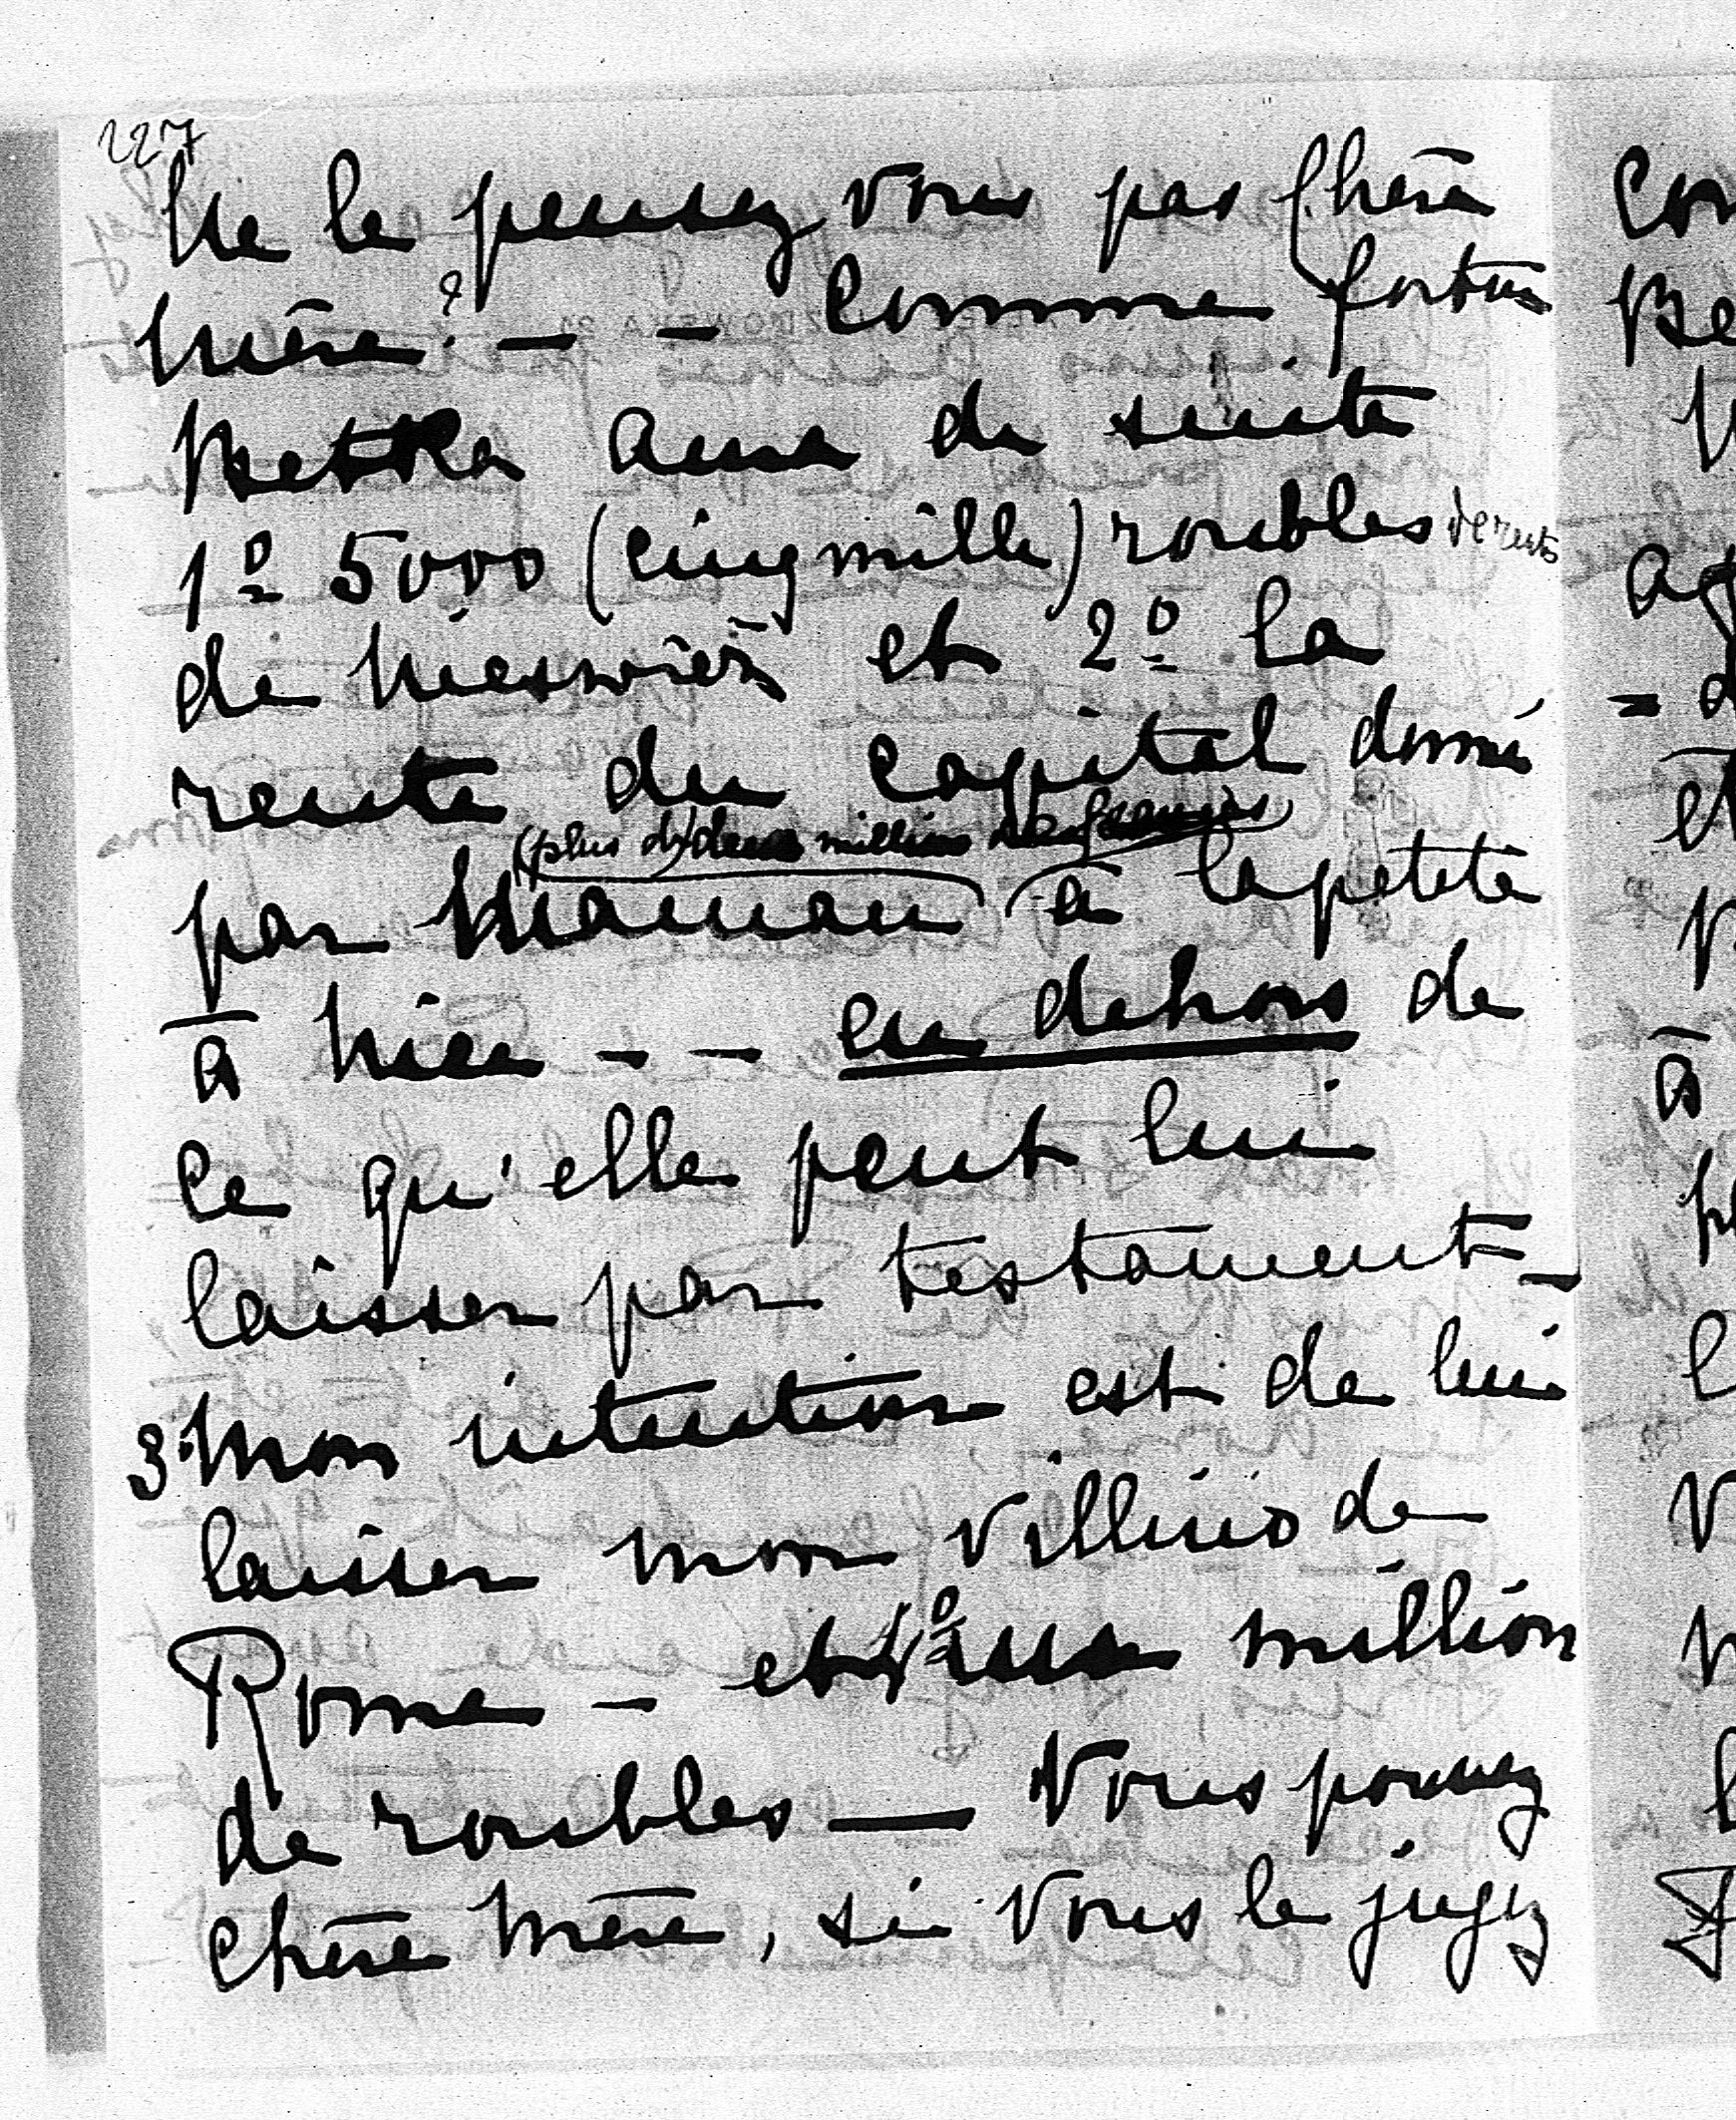 227
Ne le pensez vous pas Chère
Mère? — — Comme fortune
Betka aura de suite
1º 5000 (cinq mille) roubles de rente
de Nieswiez et 2º la
rente du capital donné
(plus de deux millions de francs)
par Maman à la petite
à Nice - - en dehors de
ce qu'elle peut lui
laisser par testament —
3º Mon intention est de lui
laisser mon villino de
Rome — et 4º un million
de roubles — Vous pouvez
chère Mère, si vous le jugez